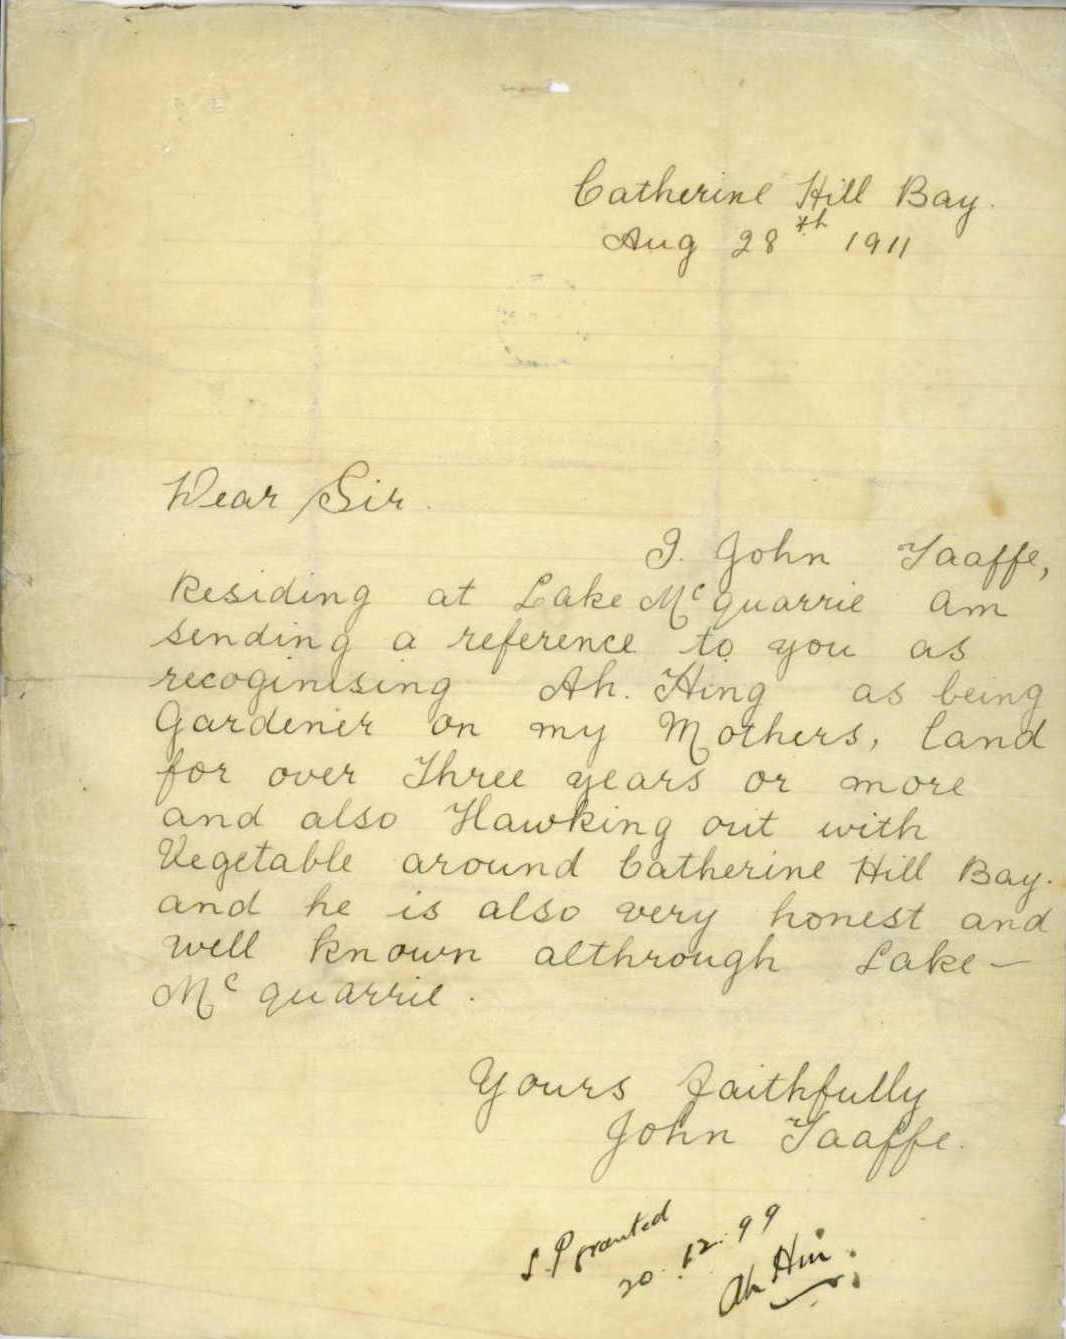 Catherine Hill Bay.
Aug 28th 1911
Dear Sir.
I. John Taaffe,
Residing at Lake Mc quarrie am
sending a reference to you as
recoginising Ah. Hing as being
Gardener on my Mothers, land
for over Three years or more
and also Hawking out with
Vegetable around Catherine Hill Bay.
and he is also very honest and
well known althrough Lake —
Mc quarrie.
Yours Faithfully
John Taaffe.
S. P granted
20.12.99
Ah Hin